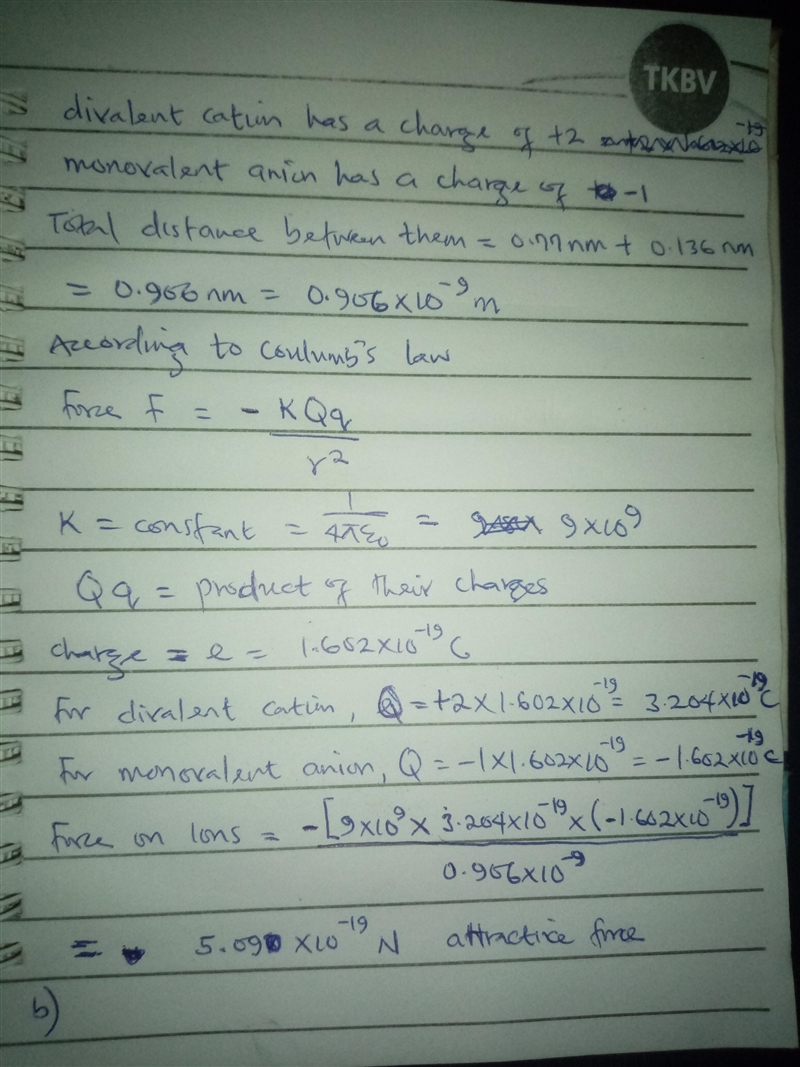 TKBV
divalent cation has a charge of +2
monovalent anion has a charge of -1
Total distance between them = 0.77nm + 0.136 nm
= 0.906 nm = 0.906 x 10⁻⁹ m
According to Coulumb's law
Force F = - KQq / r²
K = constant = 1/4πε₀ = 9 x 10⁹
Qq = product of their charges
charge = e = 1.602 x 10⁻¹⁹ C
For divalent cation, Q = +2 x 1.602 x 10⁻¹⁹ = 3.204 x 10⁻¹⁹ C
For monovalent anion, Q = -1 x 1.602 x 10⁻¹⁹ = -1.602 x 10⁻¹⁹ C
Force on Ions = -[9 x 10⁹ x 3.204 x 10⁻¹⁹ x (-1.602 x 10⁻¹⁹)]
0.906 x 10⁻⁹
= 5.090 x 10⁻¹⁹ N attractive force
b)